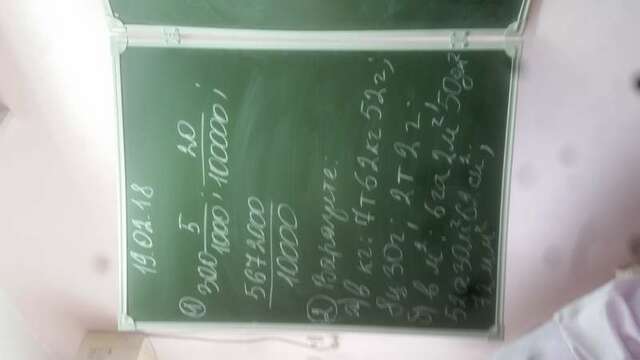 19.02.18
① 300 5/1000; 20/100000;
5672000/10000
② Выразите:
а) в кг: 7т 62кг 52г;
8ц 30г; 2т 2г;
б) в м²: 6га 2м² 50дм²
30м² 62см²;
72мм²